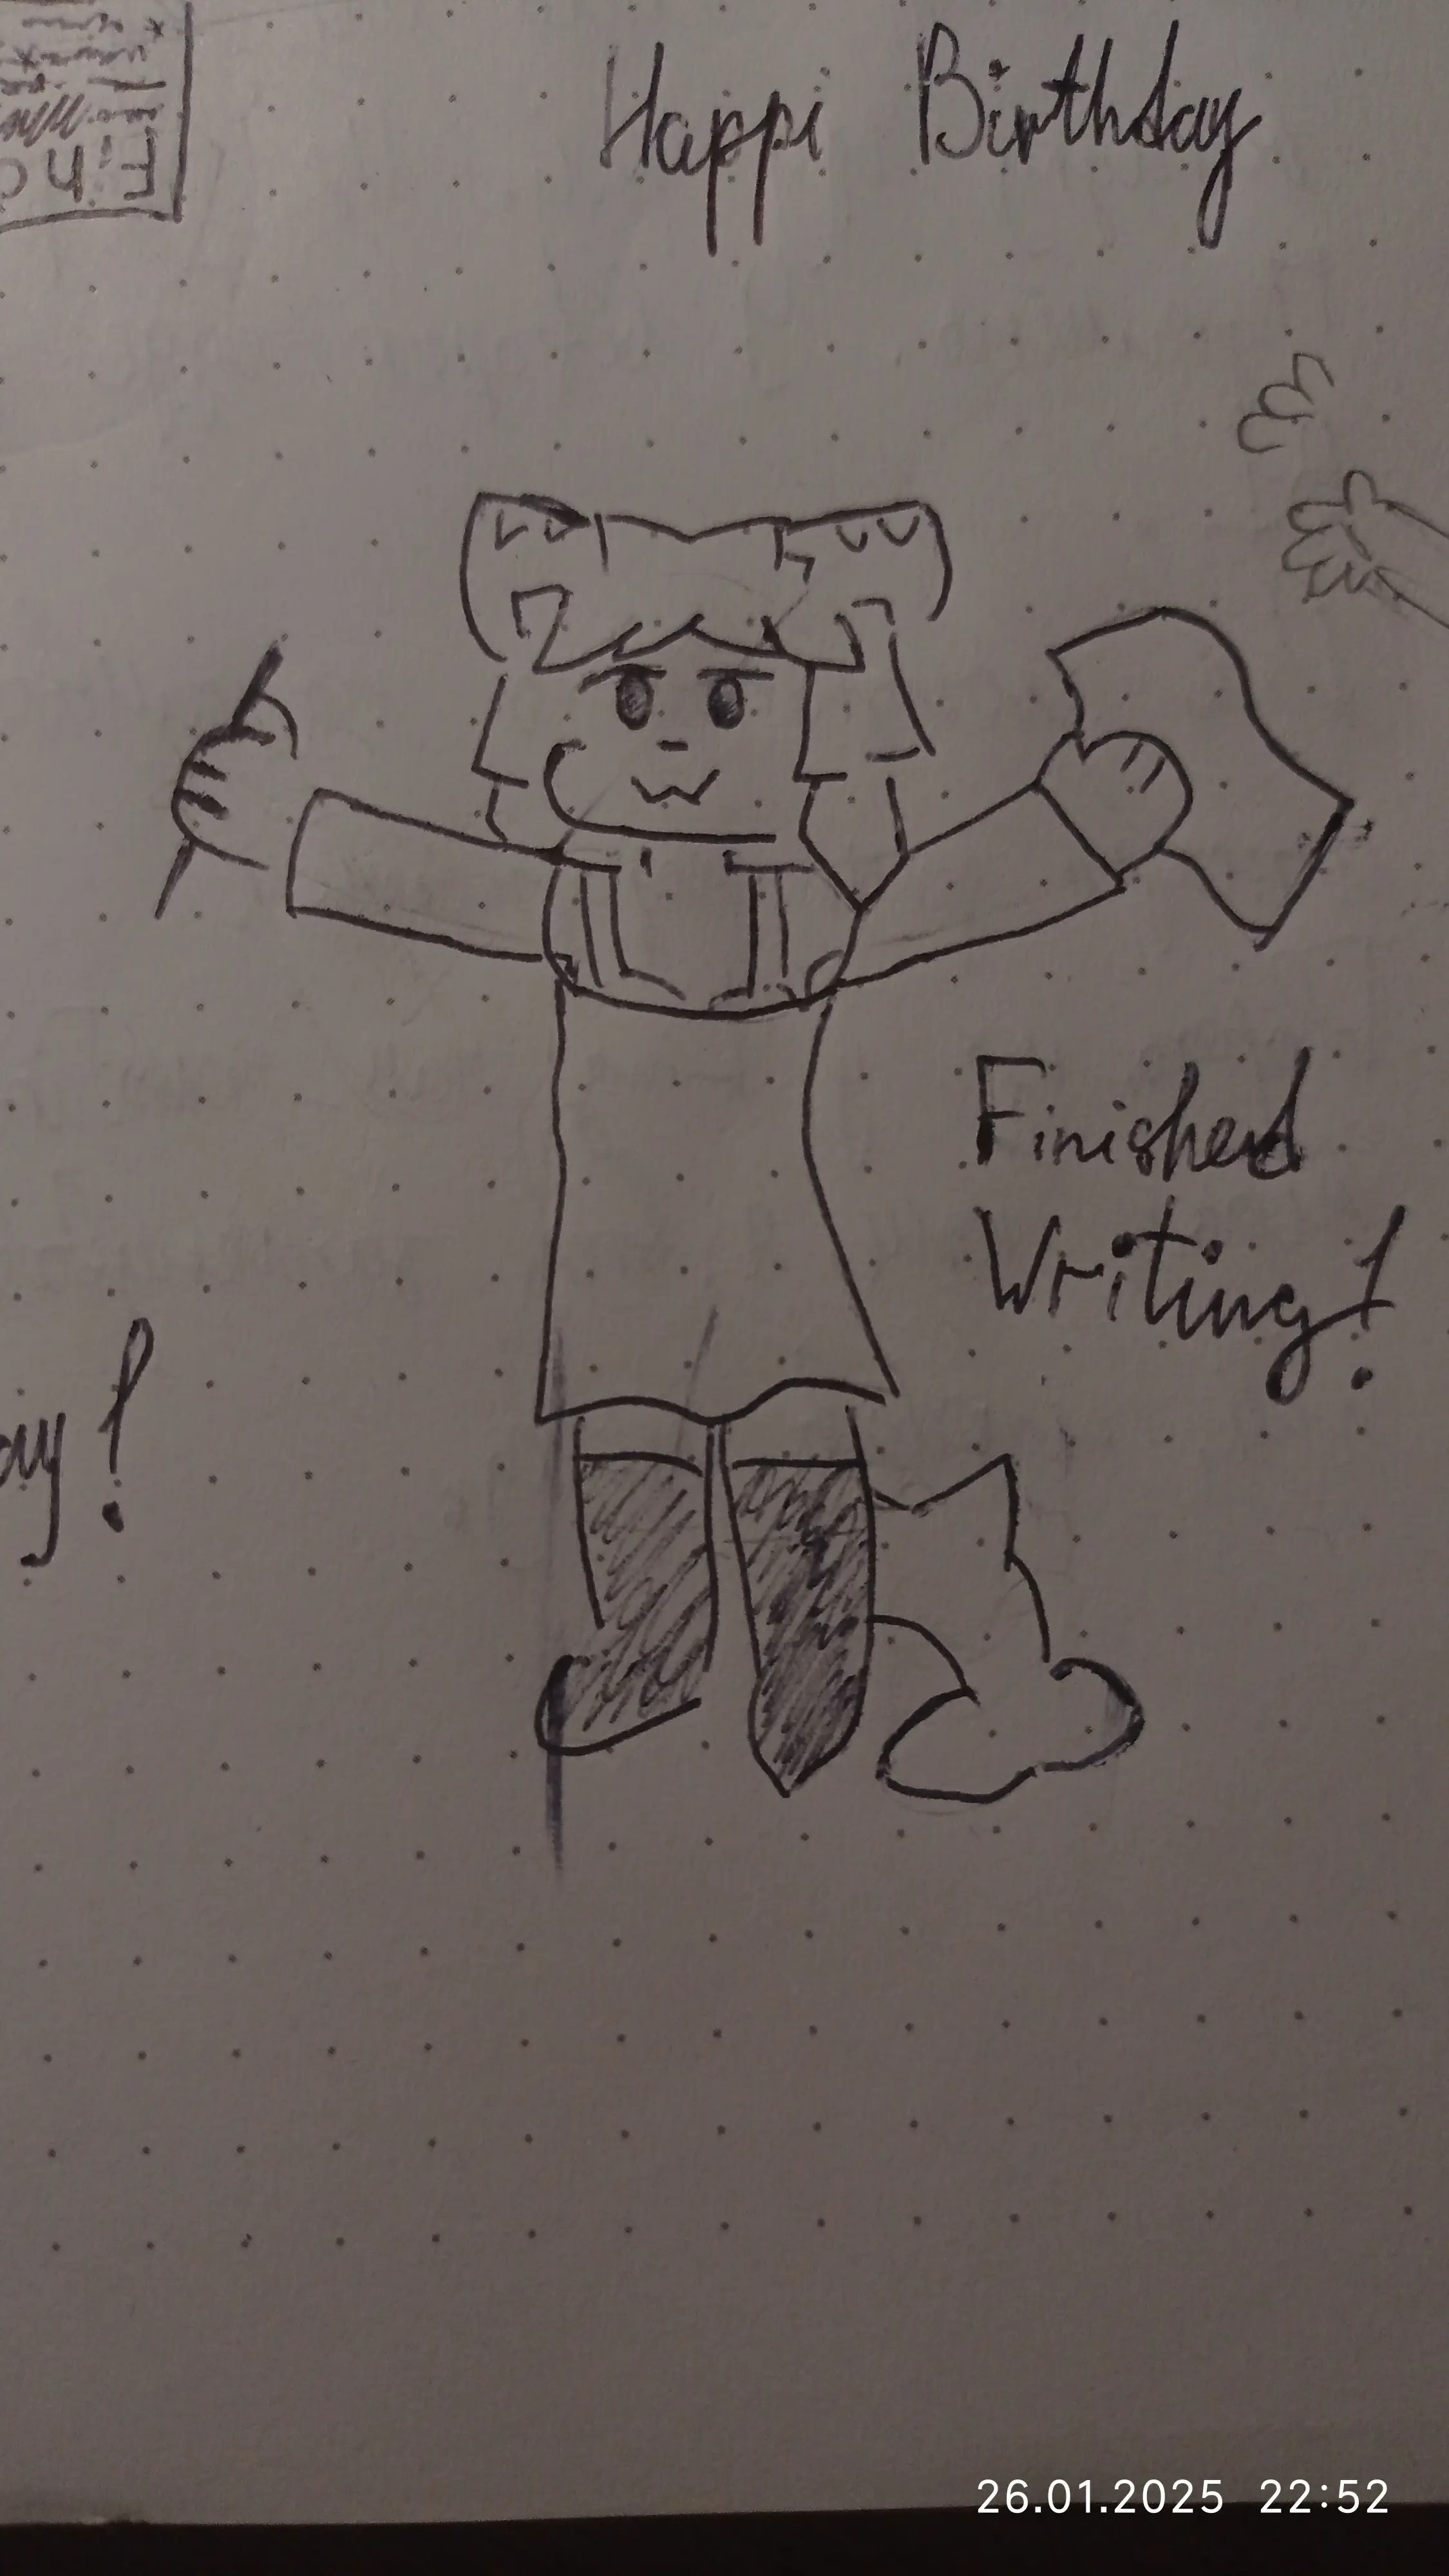 Happi Birthday
Finished
Writing!
ay!
26.01.2025 22:52